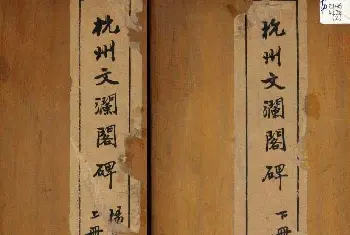 杭州文瀾閣碑
上冊
杭州文瀾閣碑
下冊